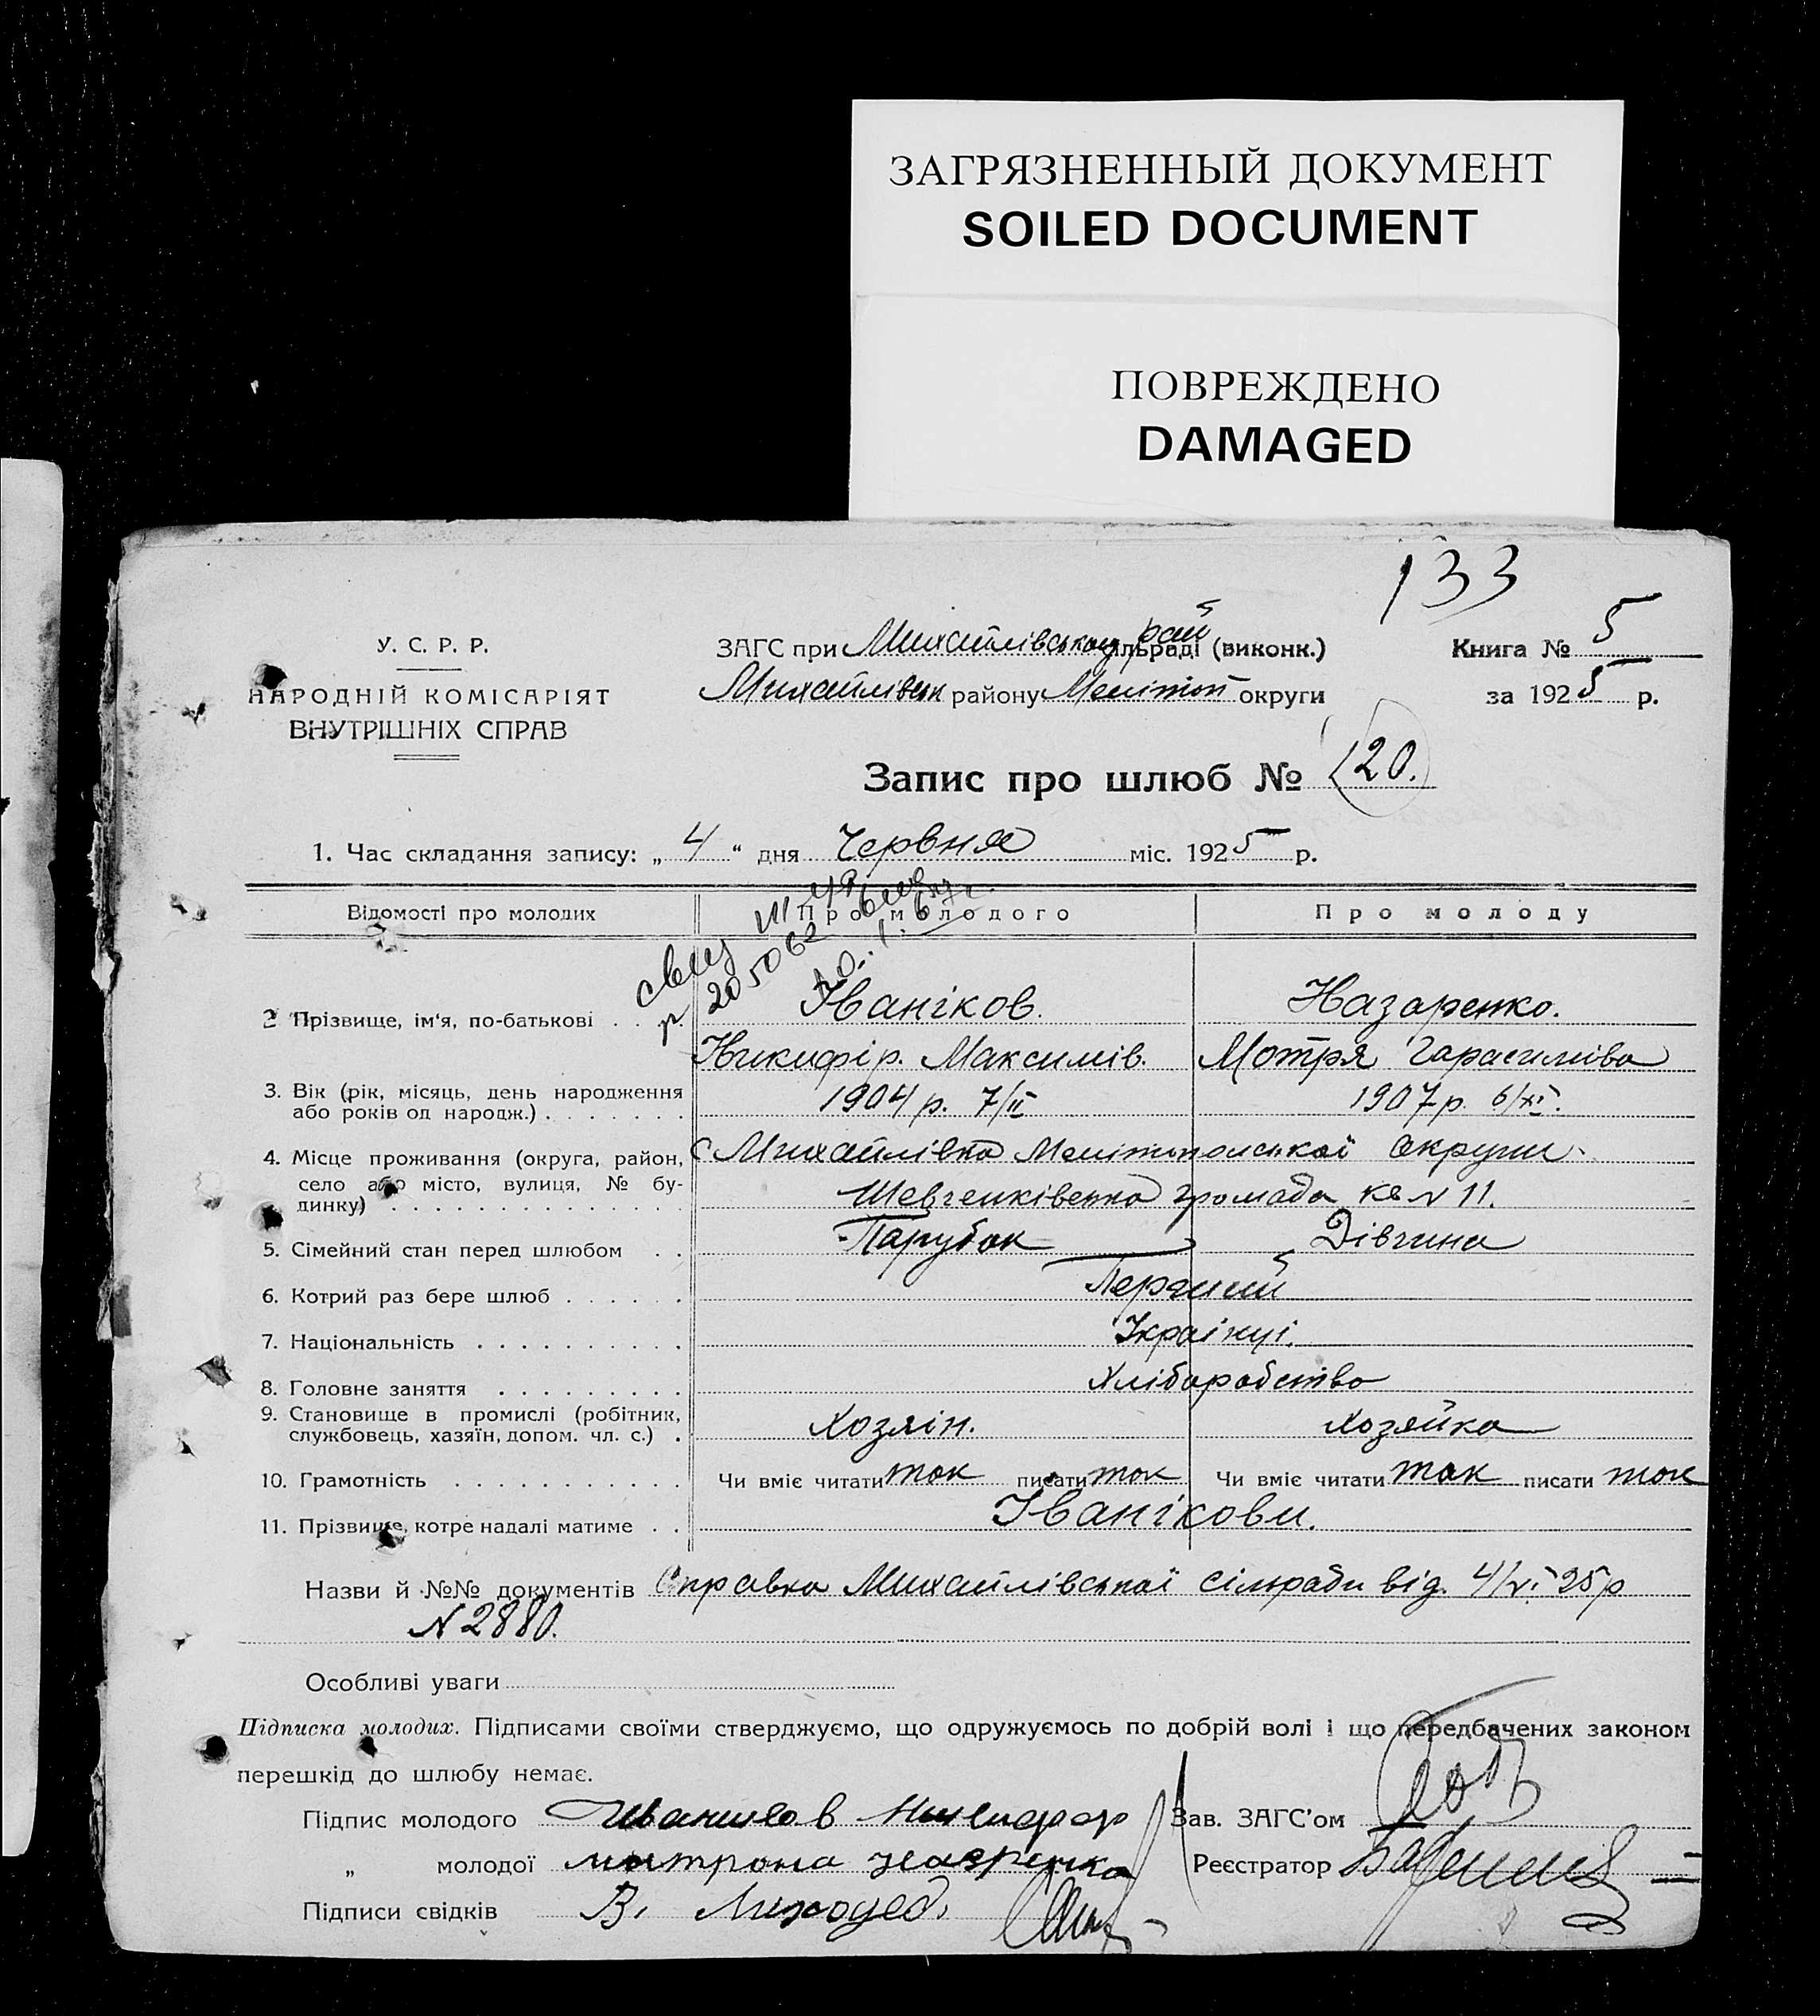 ЗАГРЯЗНЕННЫЙ ДОКУМЕНТ
SOILED DOCUMENT
ПОВРЕЖДЕНО
DAMAGED
133
У. С. Р. Р.
НАРОДНІЙ КОМІСАРІЯТ
ВНУТРІШНІХ СПРАВ
ЗАГС при Михайлівському рай (виконк.)
Михайлівськ району Меліттоп округи
Книга № 5
за 1925 р.
Запис про шлюб № 120.
1. Час складання запису: „ 4 “ дня Червня міс. 1925 р.
Відомості про молодих Про молодого Про молоду
205062
2 Прізвище, ім'я, по-батькові Іваніков. Назаренко.
Никифір. Максимів. Мотря Гарасимівa
3. Вік (рік, місяць, день народження
або років од народж.) 1904 р. 7/II 1907 р. 6/XI.
4. Місце проживання (округа, район, с Михайлівка Мелітопольської Округи
село або місто, вулиця, № бу-
динку) Шевченківська громада кв N 11.
5. Сімейний стан перед шлюбом Парубок Дівчина
6. Котрий раз бере шлюб Перший
7. Національність Українці.
8. Головне заняття Хліборобство
9. Становище в промислі (робітник,
службовець, хазяїн, допом. чл. с.) Хозяін. Хозяйка
10. Грамотність Чи вміє читати так писати так Чи вміє читати так писати так
11. Прізвище, котре надалі матиме Іванікови.
Назви й №№ документів Справка Михайлівської сільради від. 4/VI 25р
N 2880.
Особливі уваги
Підписка молодих. Підписами своїми стверджуємо, що одружуємось по добрій волі і що передбачених законом
перешкід до шлюбу немає.
Підпис молодого Иваников Никифор Зав. ЗАГС'ом
„ молодої матрона Реєстратор
Підписи свідків В.